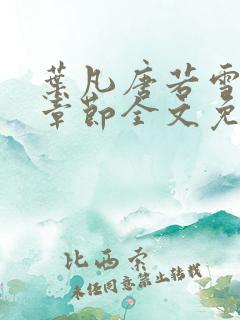 葉凡唐若雪
章節全文免
比西索
未经同意禁止转载